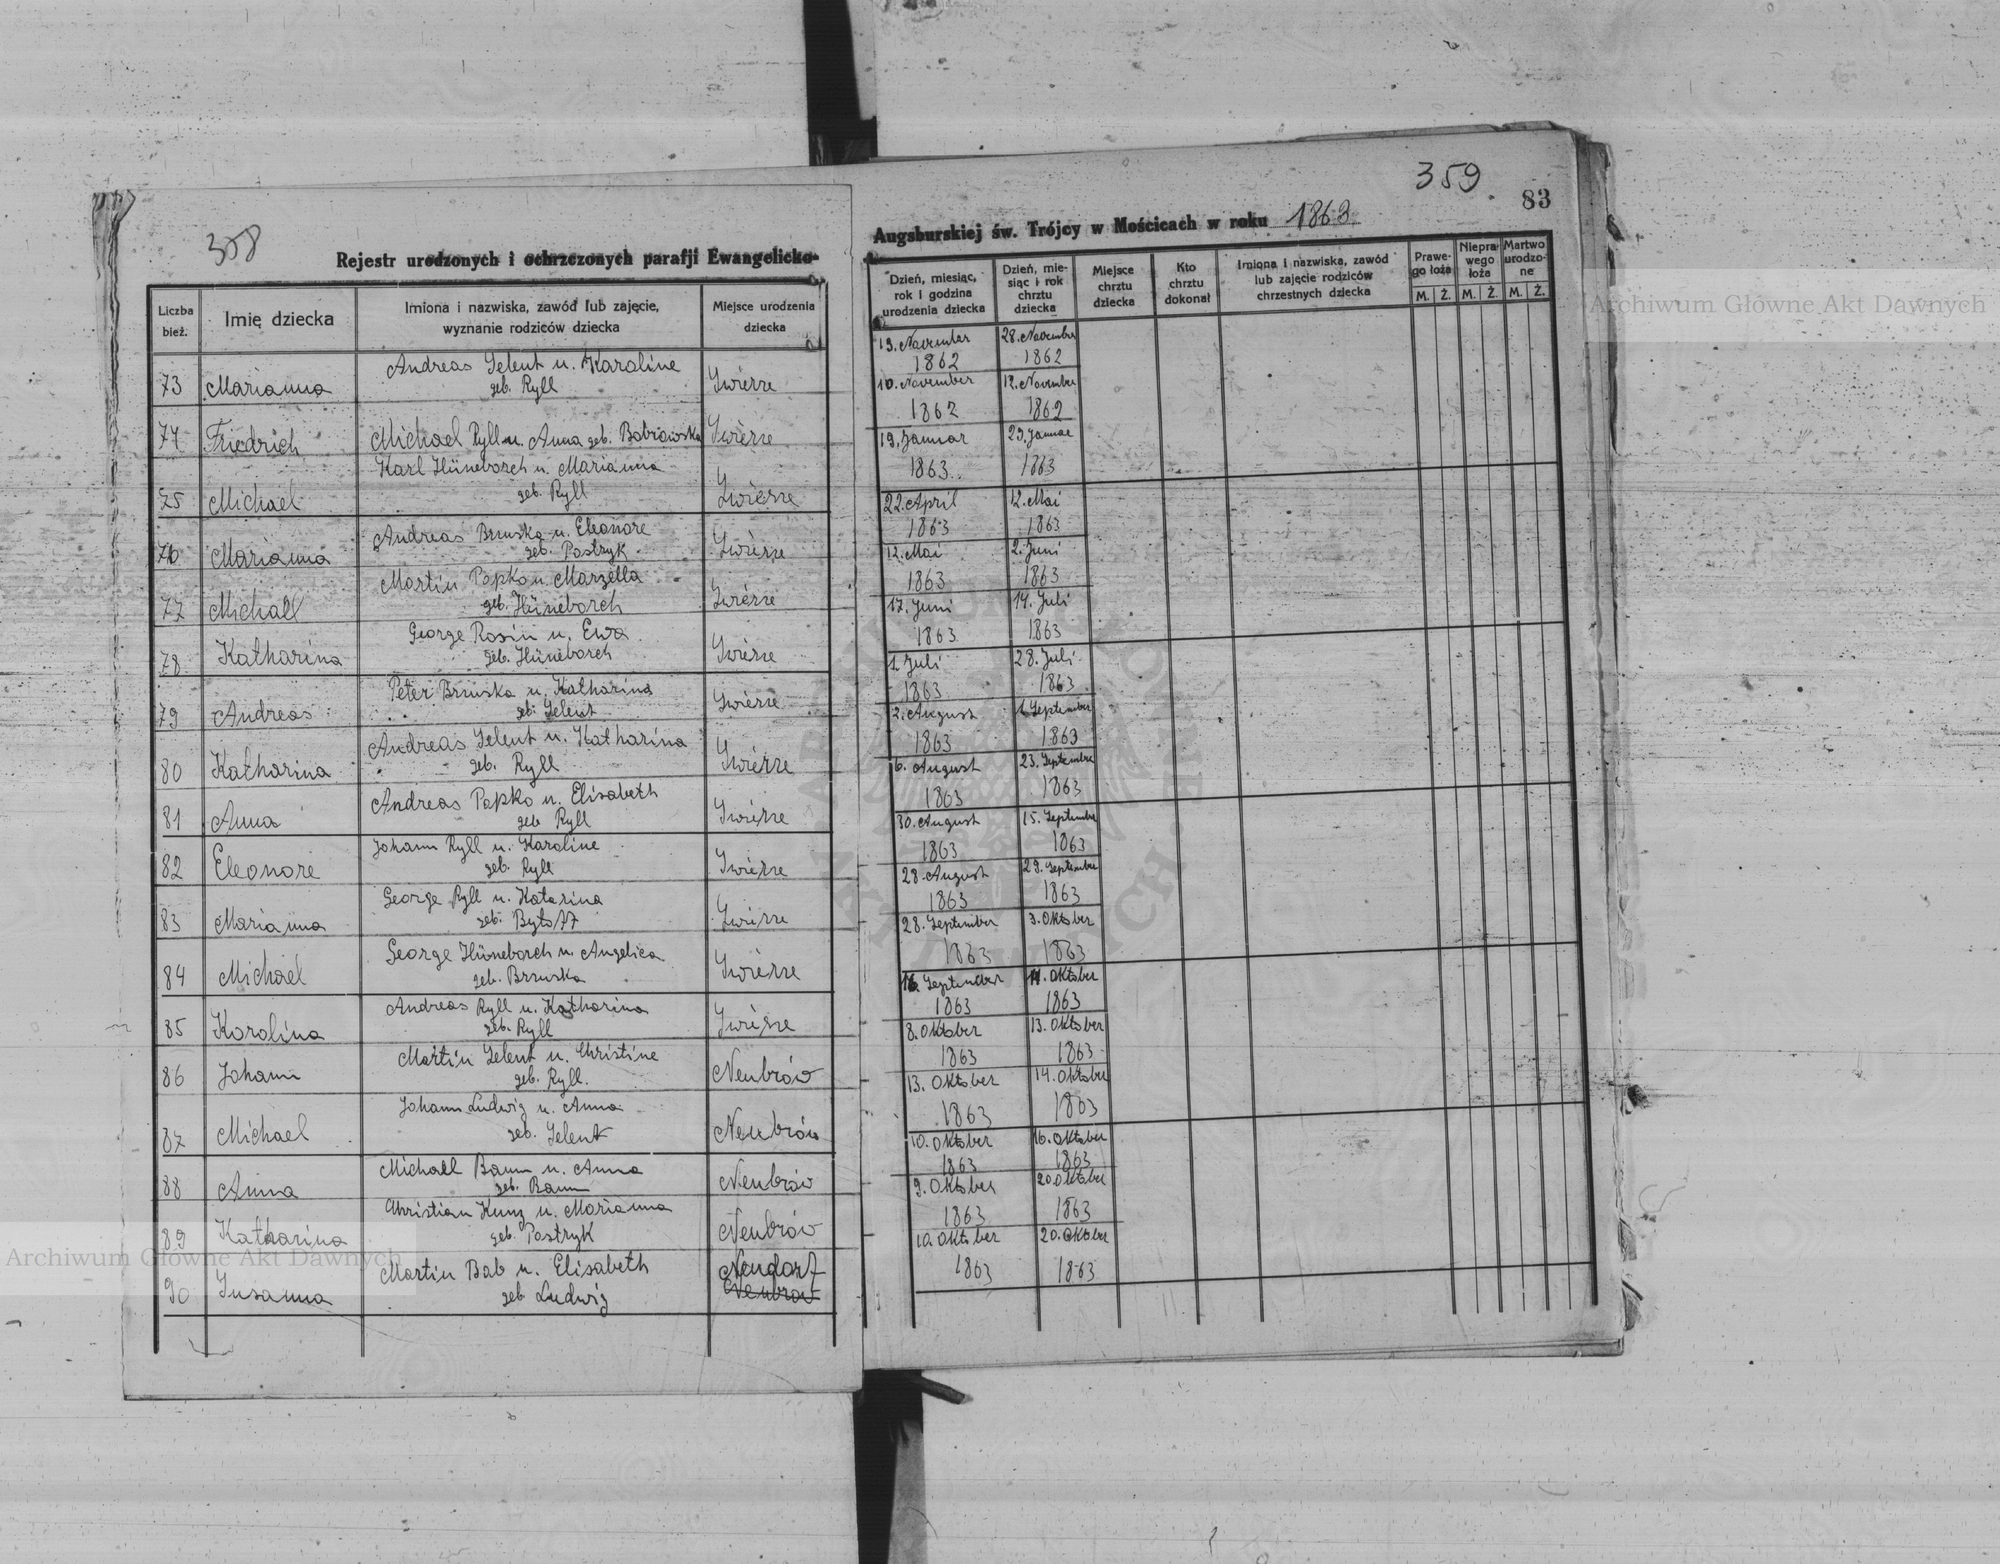 358
359
83
Rejestr urodzonych i ochrzczonych parafji Ewangelicko-
Augsburskiej św. Trójcy w Mościcach w roku 1863
Liczba bież.
Imię dziecka
Imiona i nazwiska, zawód lub zajęcie, wyznanie rodziców dziecka
Miejsce urodzenia dziecka
Dzień, miesiąc, rok i godzina urodzenia dziecka
Dzień, mie-siąc i rok chrztu dziecka
Miejsce chrztu dziecka
Kto chrztu dokonał
Imiona i nazwiska, zawód lub zajęcie rodziców chrzestnych dziecka
Prawe-go łoża
Niepra-wego łoża
Martwo urodzo-ne
M. Ż. M. Ż. M. Ż.
73 Marianna Andreas Selent u. Karoline geb. Ryll Zwierze 19. November 1862 28. November 1862
74 Friedrich Michael Ryll u. Anna geb. Bobrowska Zwierze 10. November 1862 12. November 1862
75 Michael Karl Hüneborch u. Marianna geb. Ryll Zwierze 19. Januar 1863 29. Januar 1863
76 Marianna Andreas Bruska u. Eleonore geb. Pastryk Zwierze 22. April 1863 12. Mai 1863
77 Michael Martin Popko u. Marzella geb. Hüneborch Zwierze 12. Mai 1863 2. Juni 1863
78 Katharina George Rosin u. Ewa geb. Hüneborch Zwierze 17. Juni 1863 14. Juli 1863
79 Andreas Peter Bruska u. Katharina geb. Selent Zwierze 1. Juli 1863 28. Juli 1863
80 Katharina Andreas Selent u. Katharina geb. Ryll Zwierze 2. August 1863 1. September 1863
81 Anna Andreas Popko u. Elisabeth geb Ryll Zwierze 6. August 1863 23. September 1863
82 Eleonore Johann Ryll u. Karoline geb. Ryll Zwierze 30. August 1863 15. September 1863
83 Marianna George Ryll u. Katarina geb. Zwierze 28. August 1863 29. September 1863
84 Michael George Hüneborch u. Angelica geb. Bruska Zwierze 28. September 1863 3. Oktober 1863
85 Karolina Andreas Ryll u. Katharina geb. Ryll Zwierze September 1863 Oktober 1863
86 Johann Martin Selent u. Christine geb. Ryll. Neubrów 8. Oktober 1863 13. Oktober 1863
87 Michael Johann Ludwig u. Anna geb. Selent Neubrów 13. Oktober 1863 14. Oktober 1863
88 Anna Michael Baum u. Anna geb. Baum Neubrów 10. Oktober 1863 16. Oktober 1863
89 Katharina Christian Kunz u. Marianna geb. Pastryk Neubrów 9. Oktober 1863 20. Oktober 1863
90 Susanna Martin Bab u. Elisabeth geb Ludwig Neudorf Neubrow 10. Oktober 1863 20. Oktober 1863
Archiwum Główne Akt Dawnych
Archiwum Główne Akt Dawnych